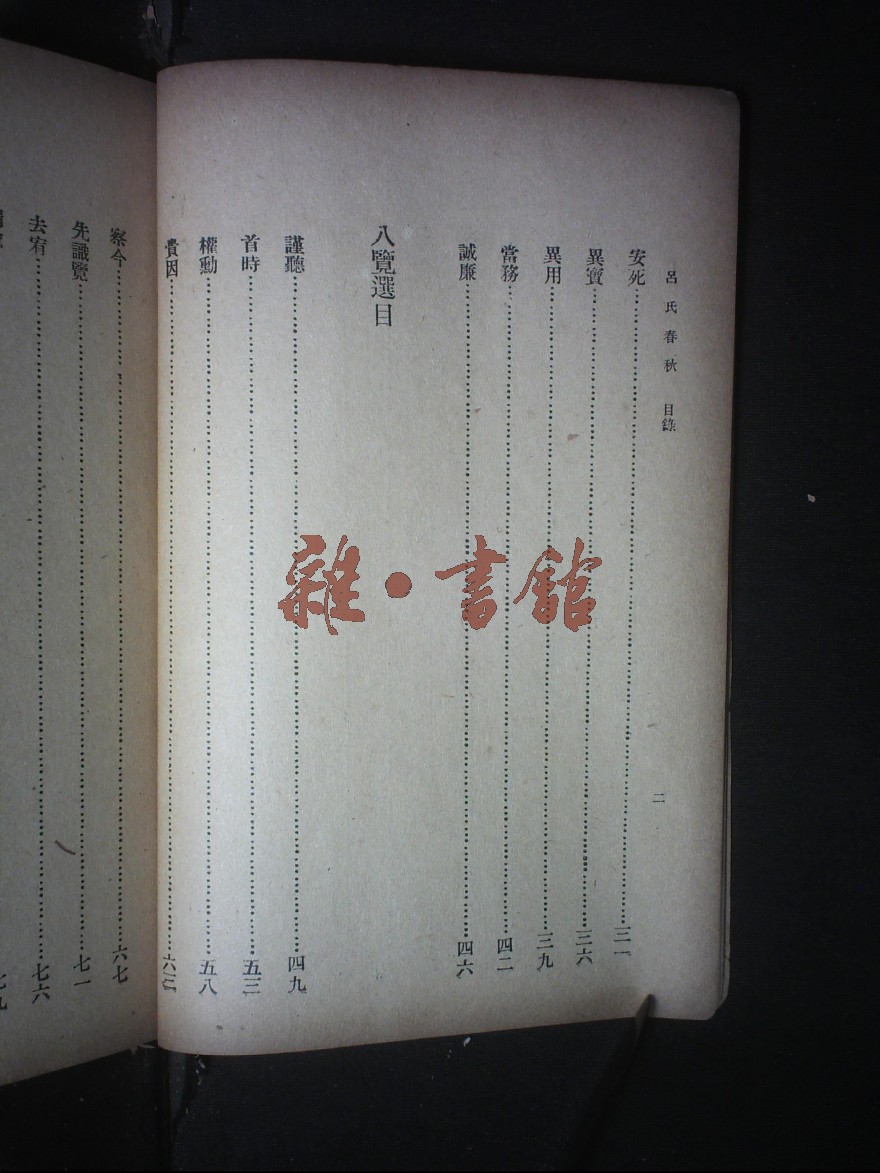 呂氏春秋 目錄
二
安死……三一
異寶……三六
異用……三九
當務……四二
誠廉……四六
八覽選目
謹聽……四九
首時……五三
權勳……五八
貴因……六三
察今……六七
先識覽……七一
去宥……七六
七九
雜·書館